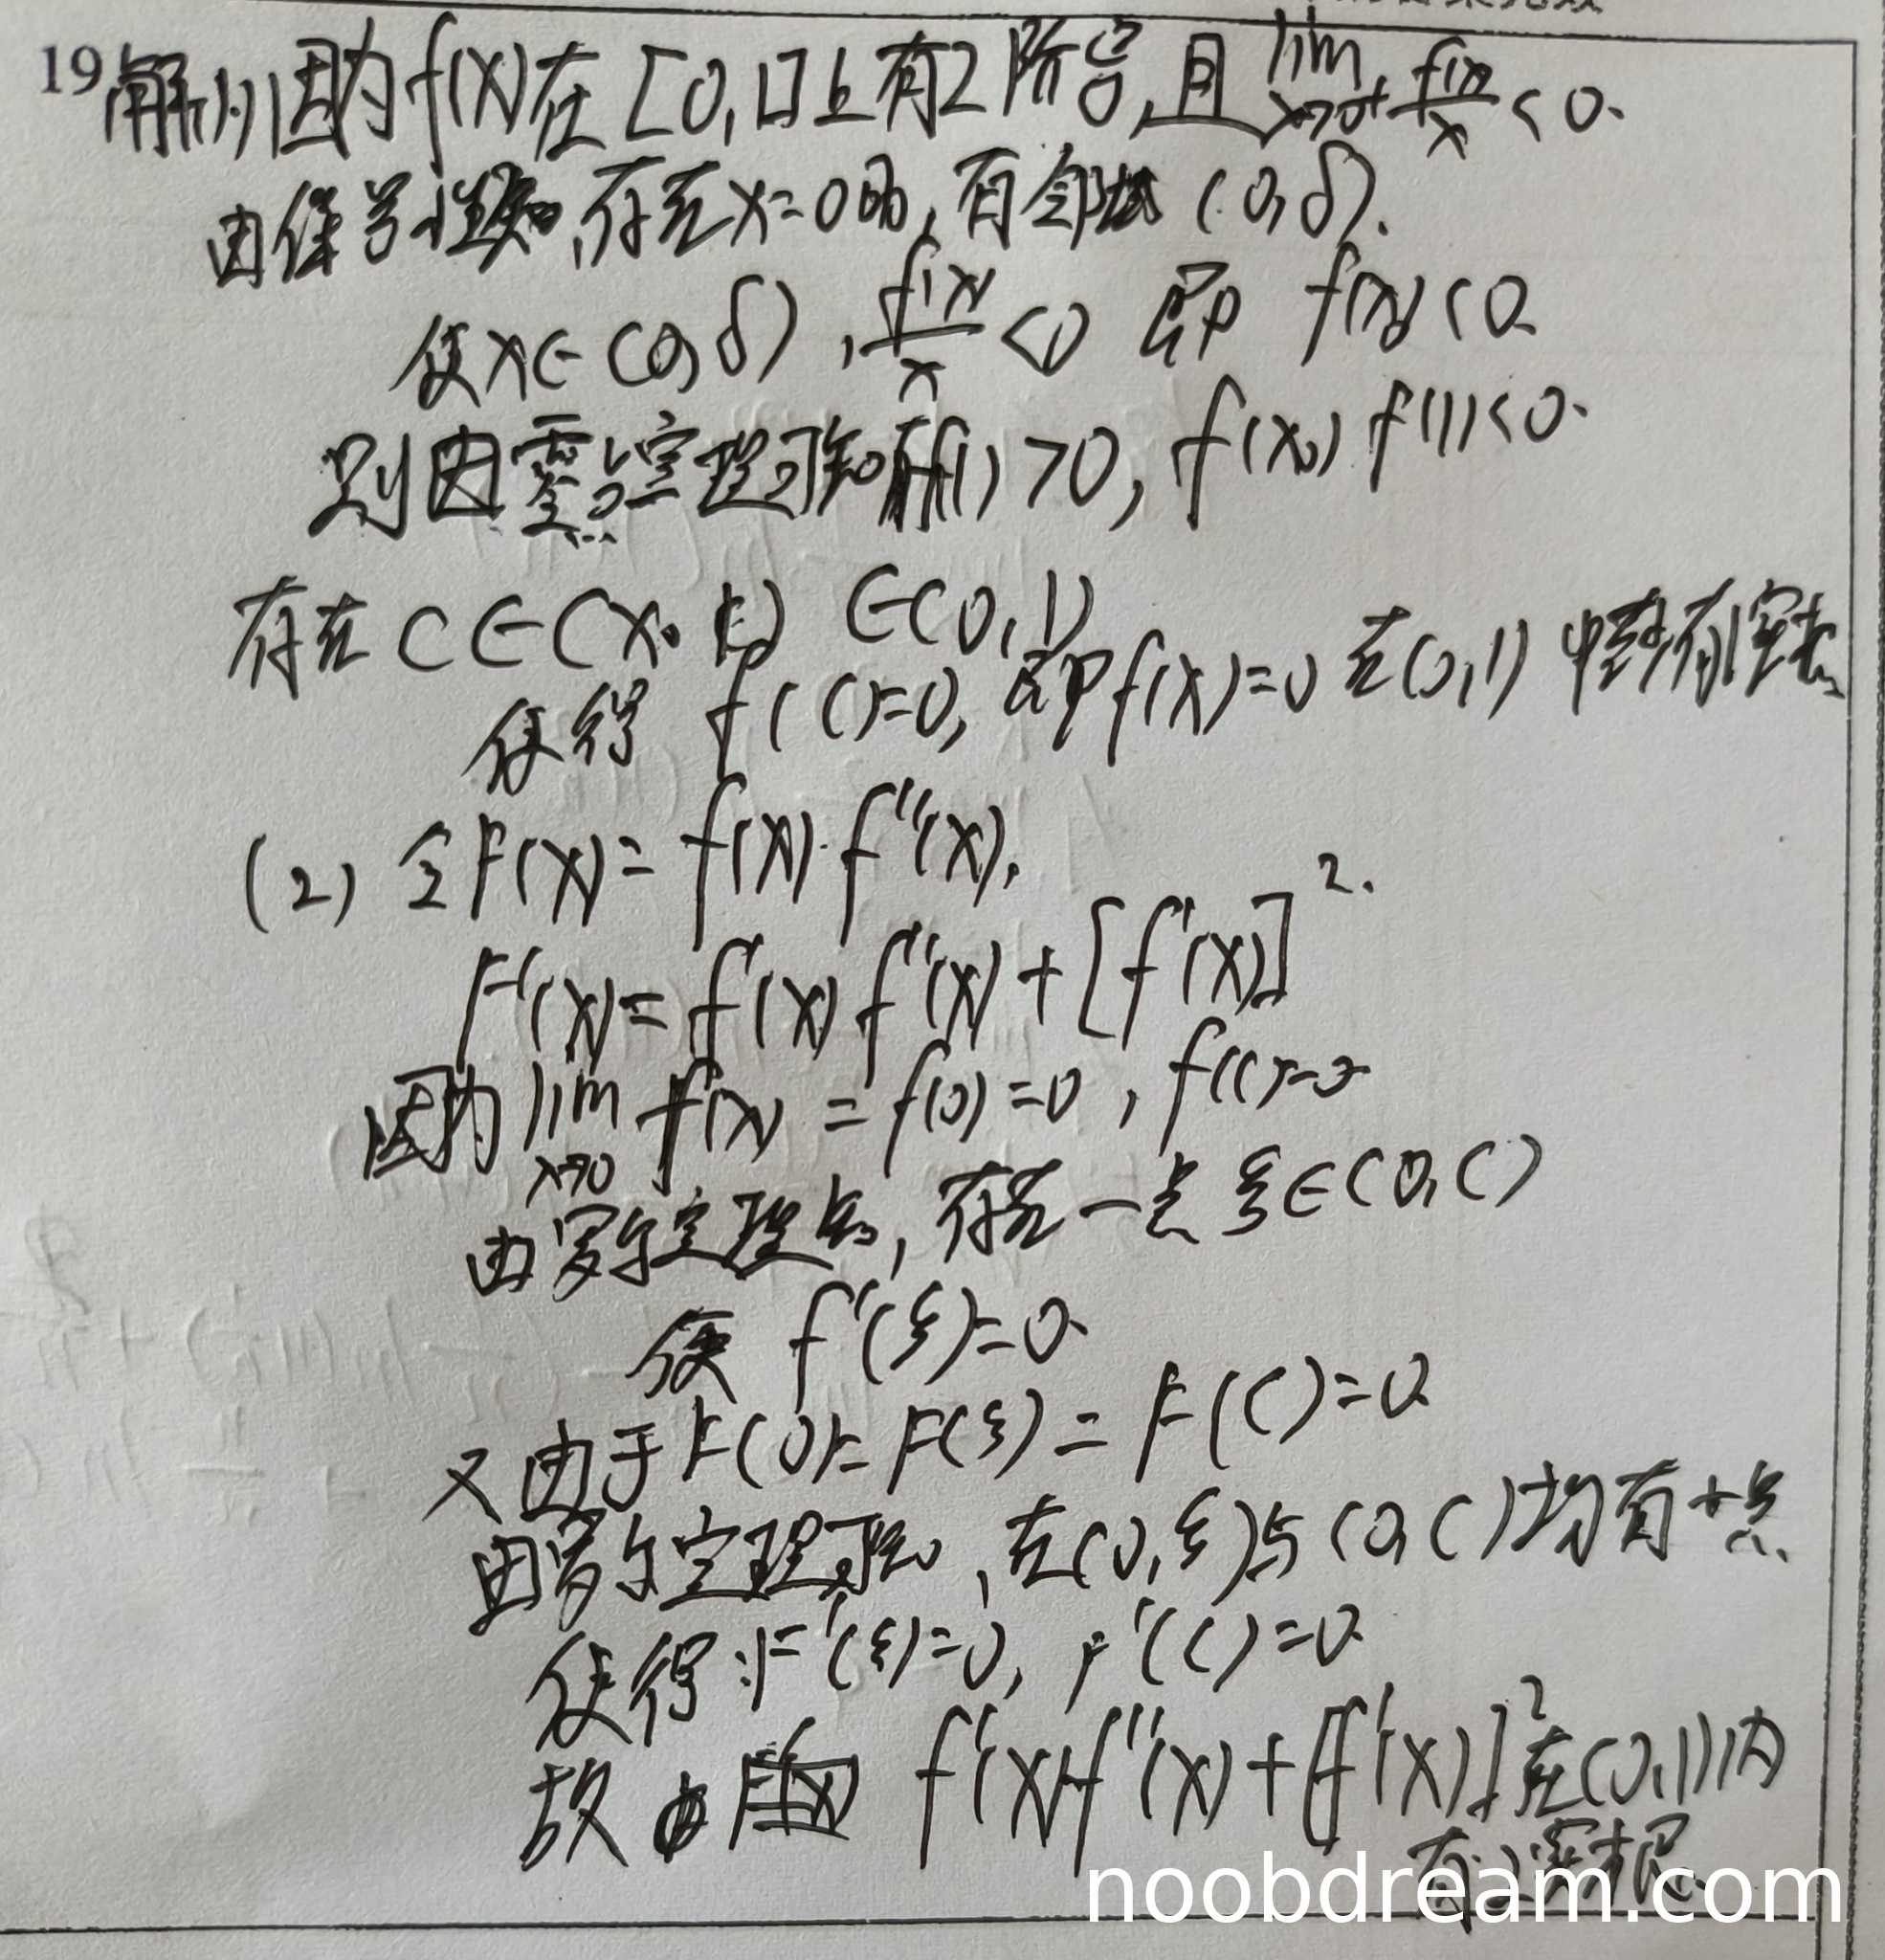 19 解(1)因为f(x)在[0,1]上有2阶导,且lim x→0+ f(x)/x < 0.
由保号性知,存在x=0的,有邻域(0,δ).
使x∈(0,δ),f(x)/x <0 即 f(x0)<0
则由零点定理可知f(1)>0, f(x0)f(1)<0.
存在c∈(x0,1)∈(0,1)
使得 f(c)=0,即f(x)=0在(0,1)中至少有1实根
(2) 令F(x)=f(x)·f''(x),
F'(x)=f'(x)f''(x)+[f'(x)]².
因为lim x→0 f(x)=f(0)=0, f(c)=0
由罗尔定理知,存在一点ξ∈(0,c)
使 f'(ξ)=0.
又由于F(0)=F(ξ)=F(c)=0
由罗尔定理可知,在(0,ξ)与(0,c)均有一点
使得:F'(ξ)=0, F'(c)=0.
故 f'(x)f''(x)+[f'(x)]²在(0,1)内
有2实根.
noobdream.com